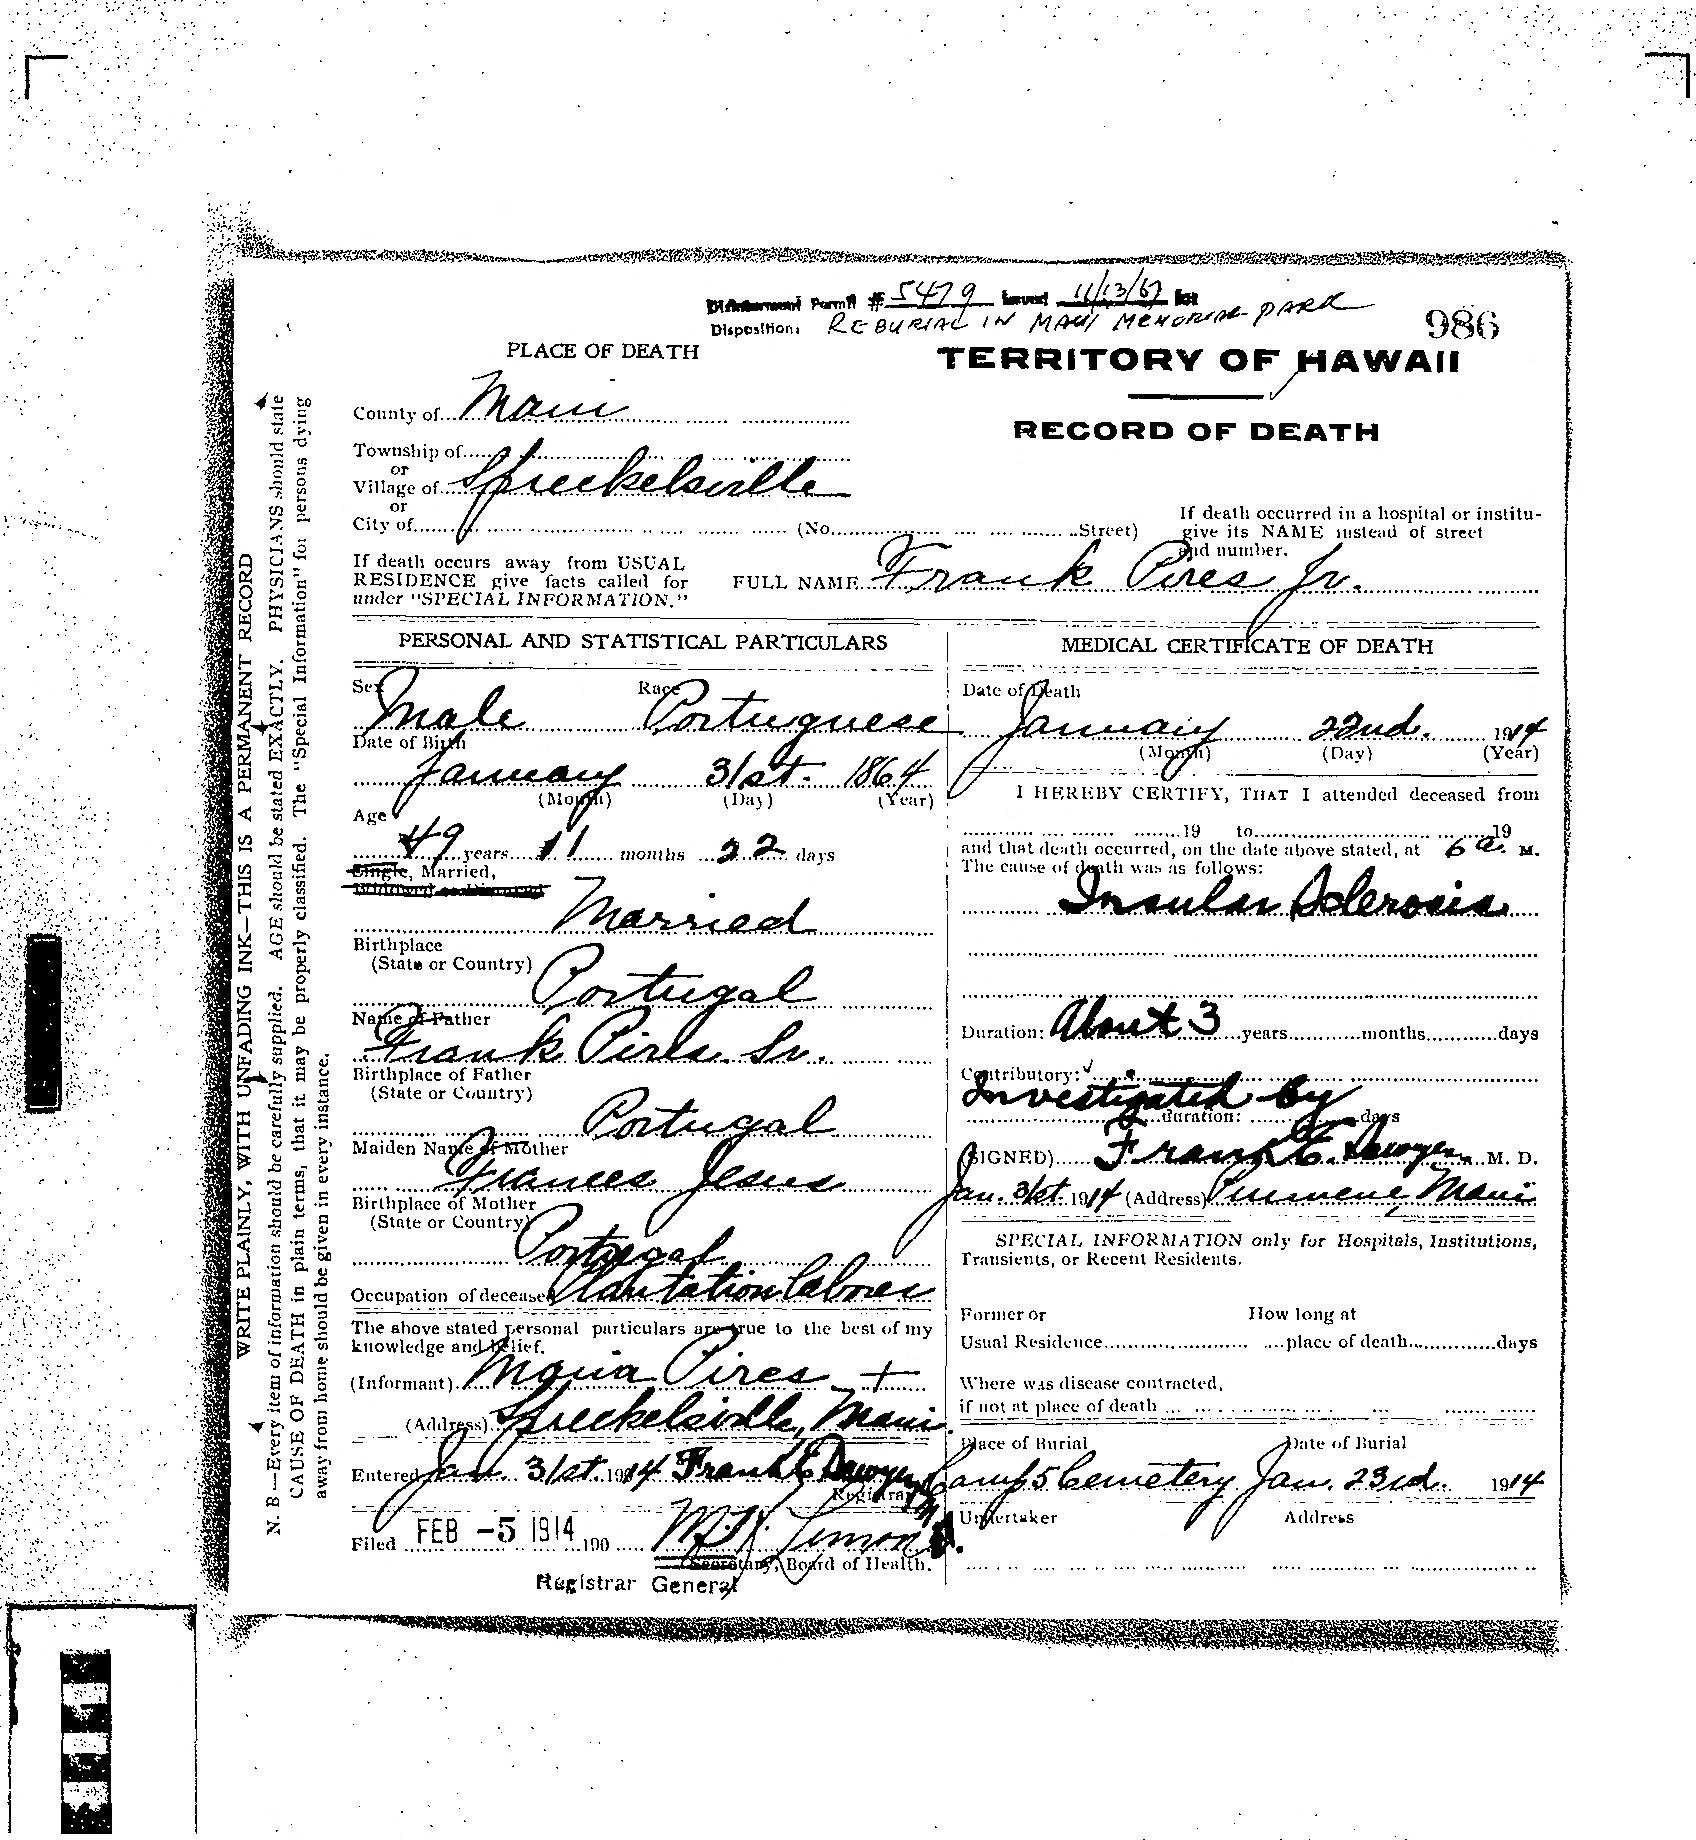 Disinterment Permit # 5479 Issued 11/13/67 for
Disposition: REBURIAL IN MAUI MEMORIAL PARK
986
PLACE OF DEATH
TERRITORY OF HAWAII
RECORD OF DEATH
County of Maui
Township of
or
Village of Spreckelsville
or
City of (No. Street)
If death occurred in a hospital or institu-
give its NAME instead of street
and number.
If death occurs away from USUAL
RESIDENCE give facts called for
under "SPECIAL INFORMATION."
FULL NAME Frank Pires Jr.
PERSONAL AND STATISTICAL PARTICULARS
Sex Race
Male Portuguese
Date of Birth
January 31st. 1864
(Month) (Day) (Year)
Age
49 years 11 months 22 days
Single, Married,
Widowed or Divorced
Married
Birthplace
(State or Country)
Portugal
Name of Father
Frank Pires Sr.
Birthplace of Father
(State or Country)
Portugal
Maiden Name of Mother
Frances Jesus
Birthplace of Mother
(State or Country)
Portugal
Occupation of deceased Plantation laborer
The above stated personal particulars are true to the best of my
knowledge and belief.
(Informant) Maria Pires +
(Address) Spreckelsville, Maui
Entered Jan. 31st. 1914 Frank E. Sawyer
Registrar
Filed FEB -5 1914 190
Secretary, Board of Health.
Registrar General
MEDICAL CERTIFICATE OF DEATH
Date of Death
January 22nd. 1914
(Month) (Day) (Year)
I HEREBY CERTIFY, THAT I attended deceased from
19 to 19
and that death occurred, on the date above stated, at 6 a. M.
The cause of death was as follows:
Insular Sclerosis
Duration: About 3 years months days
Contributory:
Investigated by
duration: days
(SIGNED) Frank E. Sawyer M. D.
Jan. 31st. 1914 (Address) Puunene, Maui
SPECIAL INFORMATION only for Hospitals, Institutions,
Transients, or Recent Residents.
Former or How long at
Usual Residence place of death days
Where was disease contracted,
if not at place of death
Place of Burial Date of Burial
Camp 5 Cemetery Jan. 23rd. 1914
Undertaker Address
WRITE PLAINLY, WITH UNFADING INK—THIS IS A PERMANENT RECORD
N. B.—Every item of information should be carefully supplied. AGE should be stated EXACTLY. PHYSICIANS should state
CAUSE OF DEATH in plain terms, that it may be properly classified. The "Special Information" for persons dying
away from home should be given in every instance.